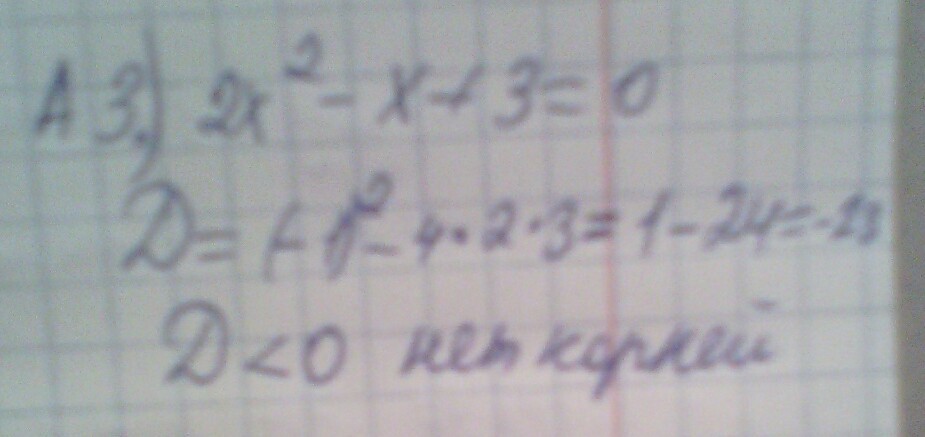 А 3.) 2x² - x + 3 = 0
D = (-1)² - 4 · 2 · 3 = 1 - 24 = -23
D < 0 нет корней